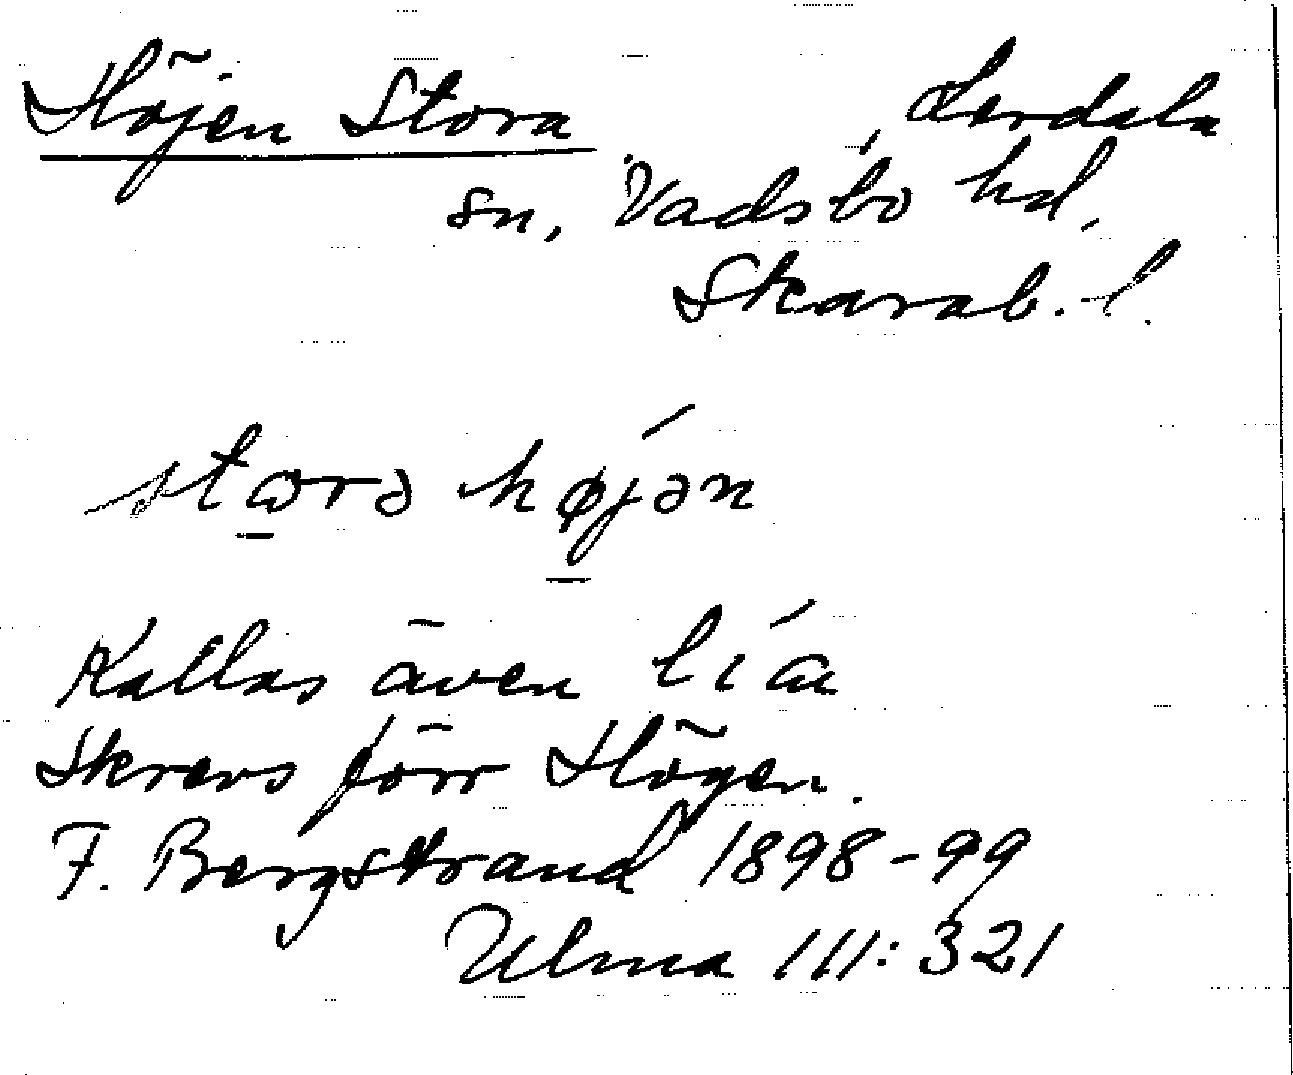 Höjen Stora, Lerdala
sn, Vadsbo hd,
Skarab. l.
storə højən
Kallas även lia
Skrevs förr Högen.
F. Bergstrand 1898-99
Ulma 111:321